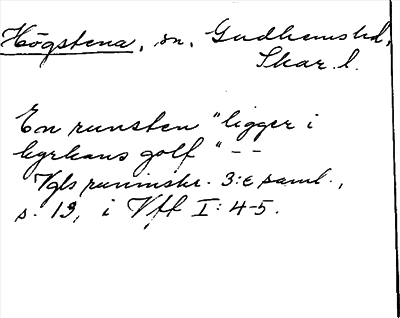 Högstena, sn, Gudhems hd,
Skar. l.
En runsten "ligger i
kyrkans golf" --
Vgls runinskr. 3:e saml.,
s. 19, i Vff I: 4-5.